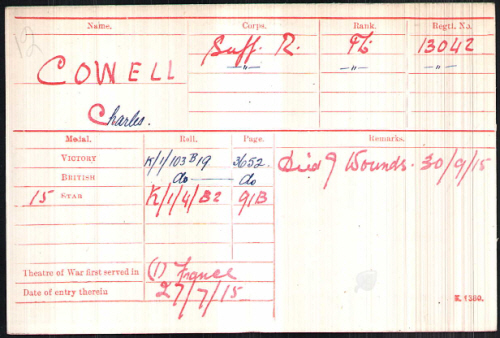 Name. Corps. Rank. Regtl. No.
12
COWELL Suff. R. Pte 13042
—"— —"— —"—
Charles.
Medal. Roll. Page. Remarks.
VICTORY K/1/103 B19 3652. Died of Wounds. 30/9/15
BRITISH do do
15 STAR K/1/4/B2 91B
Theatre of War first served in (1) France
Date of entry therein 27/7/15
K. 1380.